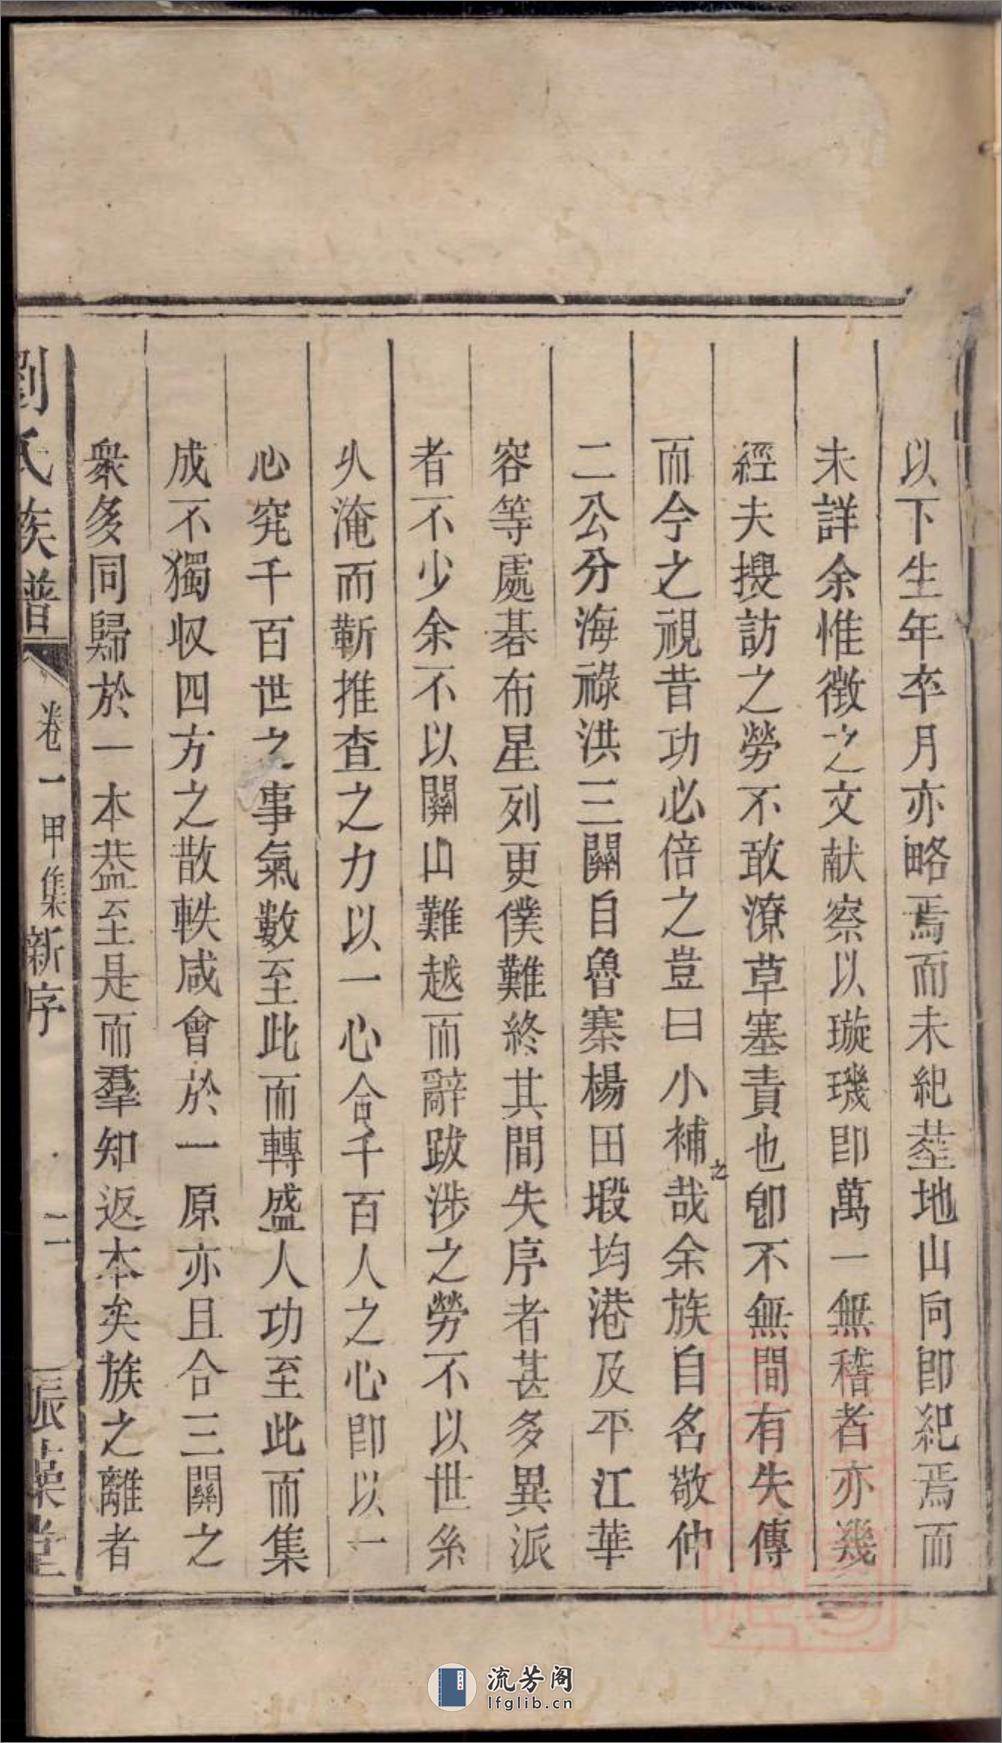 以下生年卒月亦略焉而未紀塋地山向即紀焉而
未詳余惟徵之文献察以璇璣即萬一無稽者亦幾
經夫搜訪之勞不敢潦草塞責也卽不無間有失傳
而今之視昔功必倍之豈曰小補之哉余族自名敬仲
二公分海祿洪三關自魯寨楊田塅均港及平江華
容等處碁布星列更僕難終其間失序者甚多異派
者不少余不以關山難越而辭跋涉之勞不以世系
乆淹而靳推查之力以一心合千百人之心即以一
心究千百世之事氣數至此而轉盛人功至此而集
成不獨収四方之散軼咸會於一原亦且合三關之
衆多同歸於一本葢至是而羣知返本矣族之離者
劉氏族譜
卷一甲集新序
二
振藻堂
流芳阁
lfglib.cn